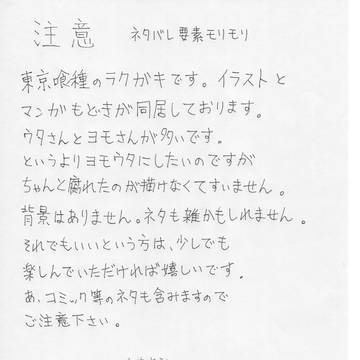 注意 ネタバレ要素モリモリ
東京喰種のラクガキです。イラストと
マンガもどきが同居しております。
ウタさんとヨモさんが多いです。
というよりヨモウタにしたいのですが
ちゃんと腐れたのが描けなくてすいません。
背景はありません。ネタも雑かもしれません。
それでもいいという方は、少しでも
楽しんでいただければ嬉しいです。
あ、コミック等のネタも含みますので
ご注意下さい。